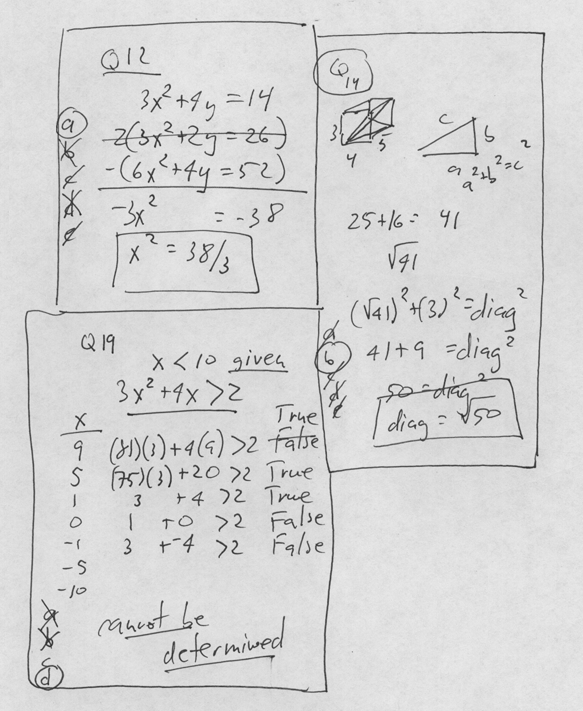 Q12
3x² + 4y = 14
2(3x² + 2y = 26)
-(6x² + 4y = 52)
-3x² = -38
x² = 38/3
a
b
c
d
e
Q14
3
4
5
c
b
a
a² + b² = c²
25 + 16 = 41
√41
(√41)² + (3)² = diag²
41 + 9 = diag²
50 = diag²
diag = √50
a
b
c
d
e
Q19
x < 10 given
3x² + 4x > 2
x
True
9 (81)(3) + 4(9) > 2 False
5 (75)(3) + 20 > 2 True
1 3 + 4 > 2 True
0 1 + 0 > 2 False
-1 3 + -4 > 2 False
-5
-10
a
b
c
d
cannot be
determined